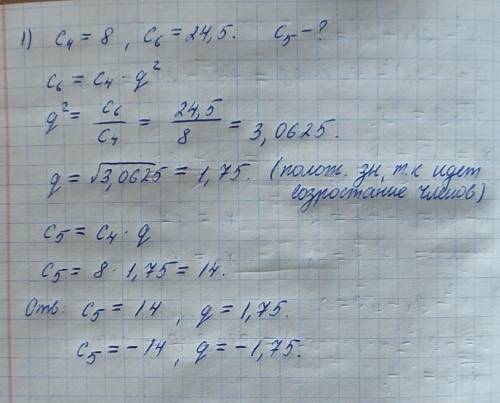 1) c₄ = 8 , c₆ = 24,5. c₅ - ?
c₆ = c₄ · q²
q² = c₆/c₄ = 24,5/8 = 3,0625.
q = √3,0625 = 1,75. (полож. зн, т.к идет
возростание членов)
c₅ = c₄ · q
c₅ = 8 · 1,75 = 14.
Отв: c₅ = 14 , q = 1,75.
c₅ = -14 , q = -1,75.